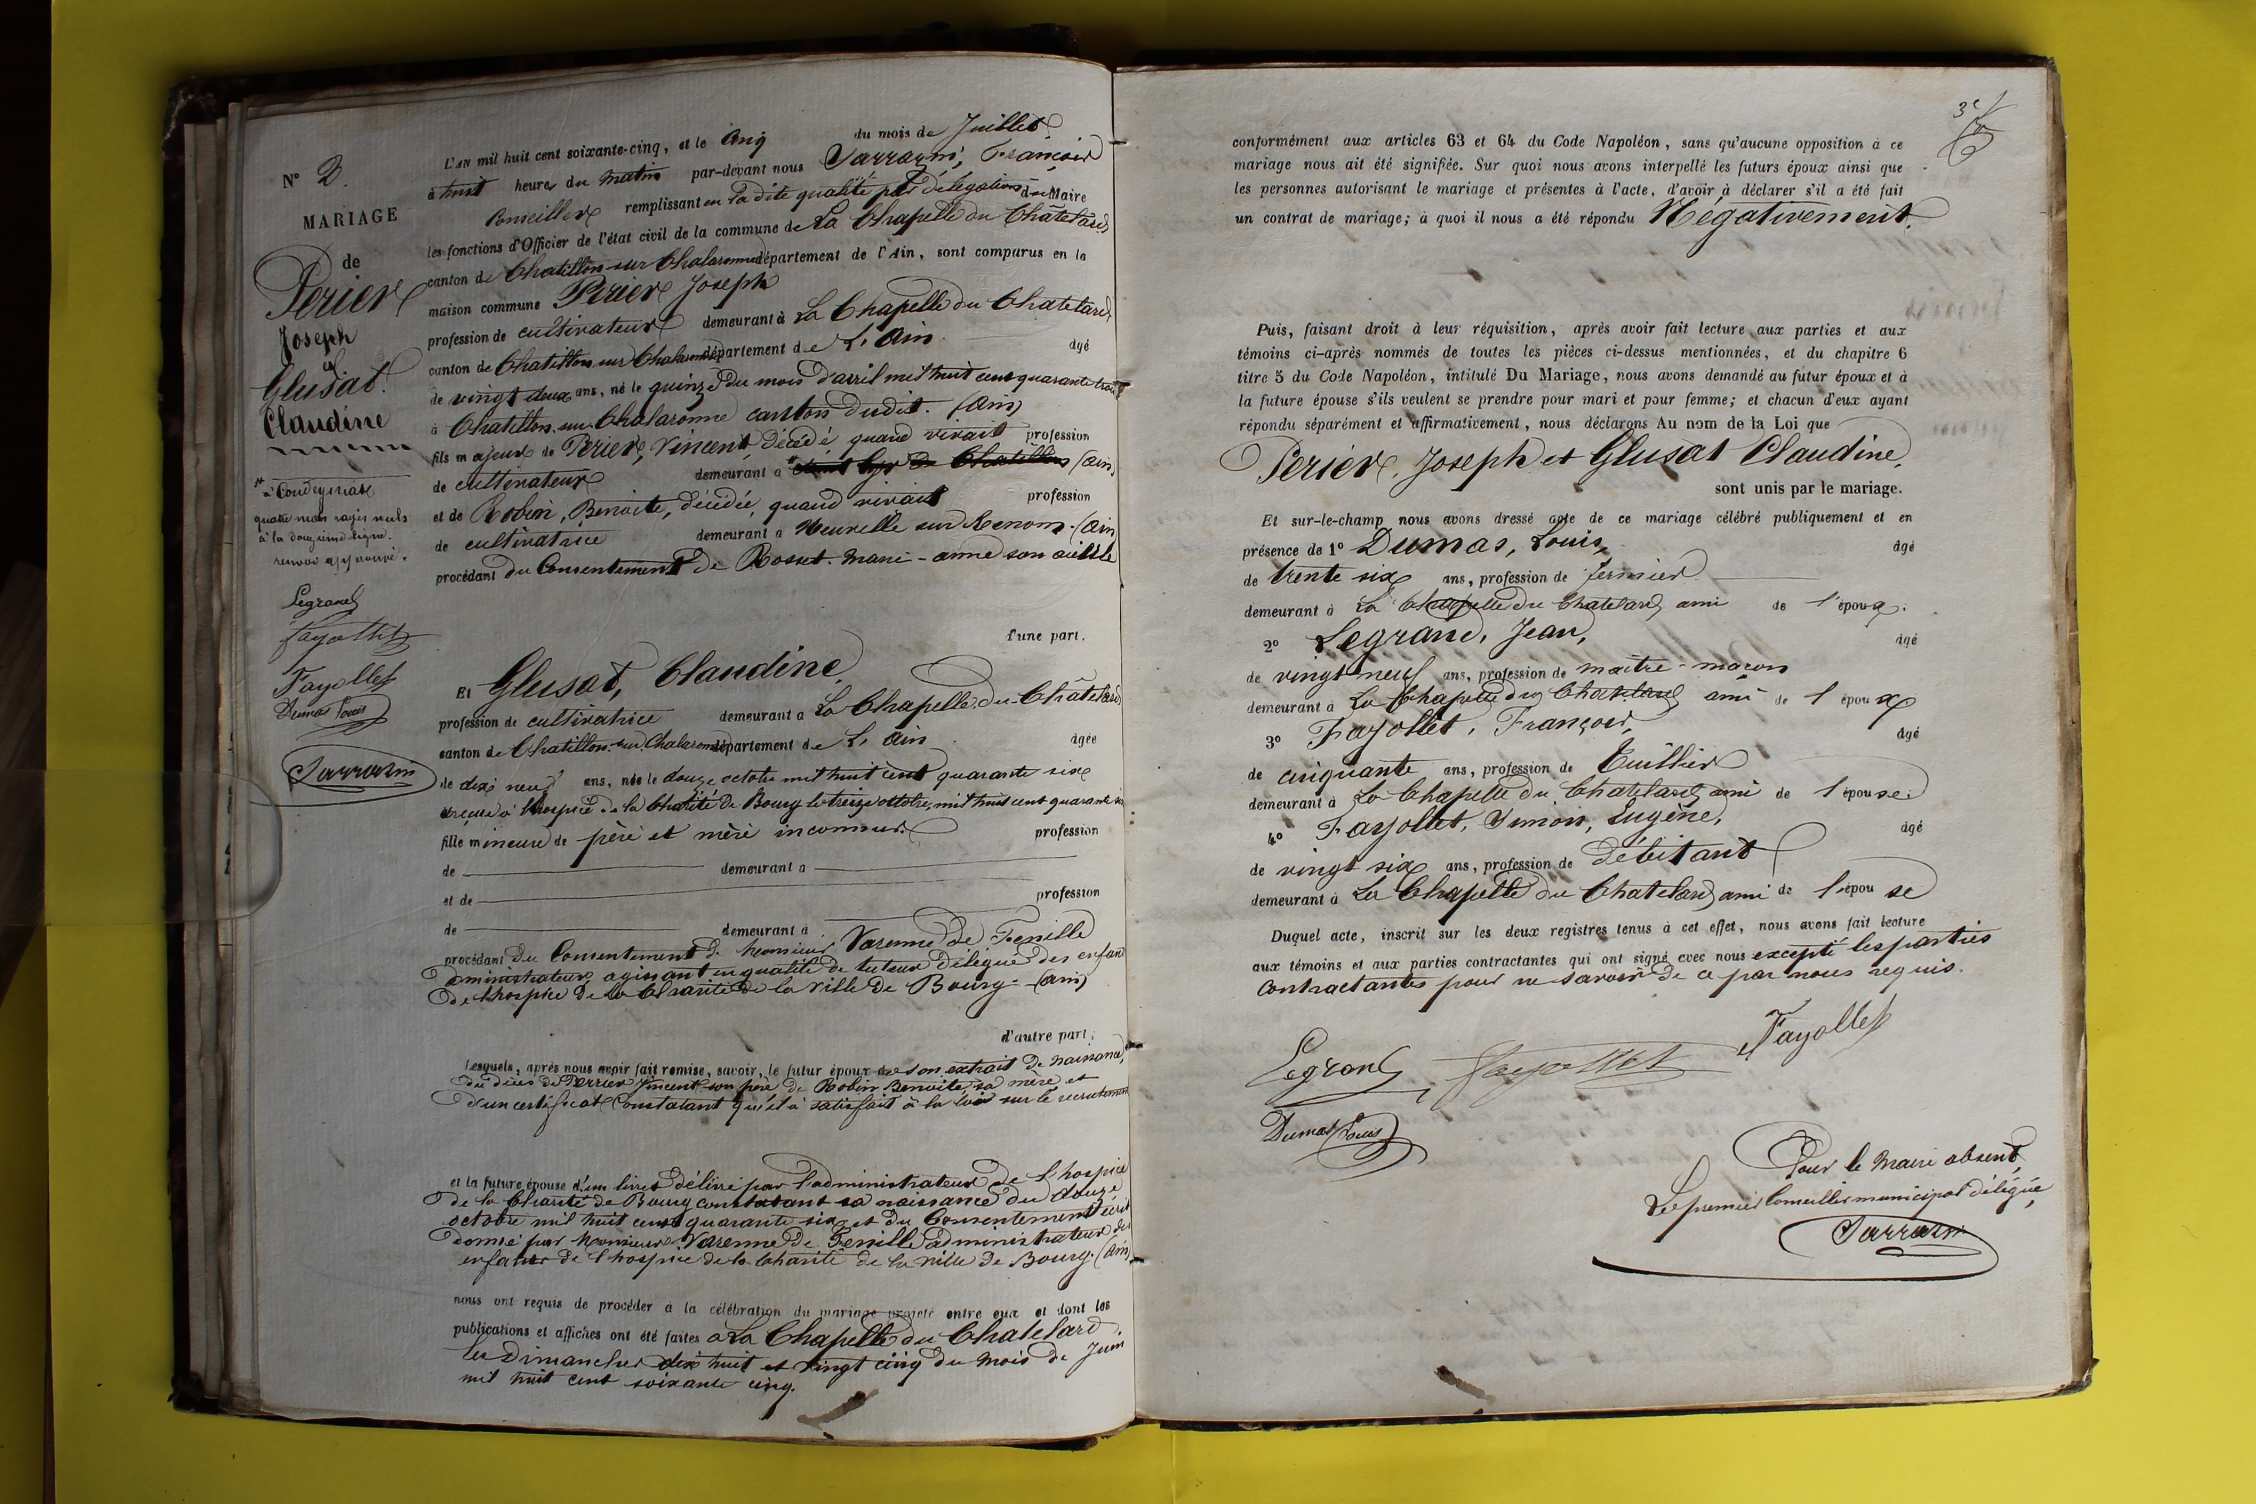 N° 2.
MARIAGE
de
Perier
Joseph
et
Glusat.
Claudine
à Condeyssiat
quatre mots rayés nuls
à la douzième ligne.
renvoi approuvé.
Legrand
Fayollet
Fayollet
Dumas Louis
Sarrazin
L'AN mil huit cent soixante-cinq, et le Cinq du mois de Juillet
à huit heures du matin par-devant nous Sarrazin, François
Conseiller remplissant en la dite qualité par délégation du Maire
les fonctions d'Officier de l'état civil de la commune de La Chapelle du Châtelard
canton de Chatillon-sur-Chalaronne département de l'Ain, sont comparus en la
maison commune Perier Joseph
profession de cultivateur demeurant à La Chapelle du Chatelard
canton de Chatillon sur Chalaronne département de L'Ain âgé
de vingt deux ans, né le quinze du mois d'avril mil huit cent quarante trois
à Chatillon-sur-Chalaronne canton dudit. (Ain)
fils majeur de Perier, Vincent, décédé quand vivait profession
de cultivateur demeurant à (Ain)
et de Robin, Benoite, décédée, quand vivait profession
de cultivatrice demeurant à Neuville sur Renom. (Ain)
procédant du Consentement de Rosset. Marie-anne son aïeule
d'une part.
Et Glusat, Claudine,
profession de cultivatrice demeurant à La Chapelle-du-Châtelard
canton de Chatillon-sur Chalaronne département de L'Ain âgée
de dix neuf ans, née le douze octobre mil huit cent quarante six
à l'hospice de la Charité de Bourg le treize octobre mil huit cent quarante six
fille mineure de père et mère inconnus. profession
de demeurant à
et de profession
de demeurant à
procédant du Consentement de Monsieur Varenne de Fenille
administrateur agissant en qualité de tuteur délégué des enfans
de l'hospice de la Charité de la ville de Bourg. (Ain)
d'autre part;
Lesquels, après nous avoir fait remise, savoir, le futur époux de son extrait de naissance,
du décès de Perrier Vincent son père de Robin Benoite, sa mère et
d'un certificat Constatant qu'il a satisfait à la loi sur le recrutement
et la future épouse d'un livret délivré par l'administrateur de l'hospice
de la Charité de Bourg constatant sa naissance du douze
octobre mil huit cent quarante six et du Consentement écrit
donné par Monsieur Varenne de Fenille administrateur des
enfans de l'hospice de la Charité de la ville de Bourg. (Ain)
nous ont requis de procéder à la célébration du mariage projeté entre eux et dont les
publications et affiches ont été faites à La Chapelle du Chatelard.
les Dimanches dix huit et vingt cinq du mois de Juin
mil huit cent soixante cinq.
3e
conformément aux articles 63 et 64 du Code Napoléon, sans qu'aucune opposition à ce
mariage nous ait été signifiée. Sur quoi nous avons interpellé les futurs époux ainsi que
les personnes autorisant le mariage et présentes à l'acte, d'avoir à déclarer s'il a été fait
un contrat de mariage; à quoi il nous a été répondu Négativement.
Puis, faisant droit à leur réquisition, après avoir fait lecture aux parties et aux
témoins ci-après nommés de toutes les pièces ci-dessus mentionnées, et du chapitre 6
titre 5 du Code Napoléon, intitulé Du Mariage, nous avons demandé au futur époux et à
la future épouse s'ils veulent se prendre pour mari et pour femme; et chacun d'eux ayant
répondu séparément et affirmativement, nous déclarons Au nom de la Loi que
Perier, Joseph et Glusat Claudine,
sont unis par le mariage.
Et sur-le-champ nous avons dressé acte de ce mariage célébré publiquement et en
présence de 1° Dumas, Louis, âgé
de trente six ans, profession de fermier
demeurant à La Chapelle du Chatelard ami de l'époux.
2° Legrand, Jean, âgé
de vingt neuf ans, profession de maître-maçon
demeurant à La Chapelle du Chatelard ami de l'époux
3° Fayollet, François, âgé
de cinquante ans, profession de Tuillier
demeurant à La Chapelle du Chatelard ami de l'épouse.
4° Fayollet, Simon, Eugène, âgé
de vingt six ans, profession de débitant
demeurant à La Chapelle du Chatelard ami de l'épouse
Duquel acte, inscrit sur les deux registres tenus à cet effet, nous avons fait lecture
aux témoins et aux parties contractantes qui ont signé avec nous excepté les parties
contractantes pour ne savoir de ce par nous requis.
Legrand Fayollet Fayollet
Dumas Louis
Pour le Maire absent,
Le premier Conseiller municipal délégué,
Sarrazin